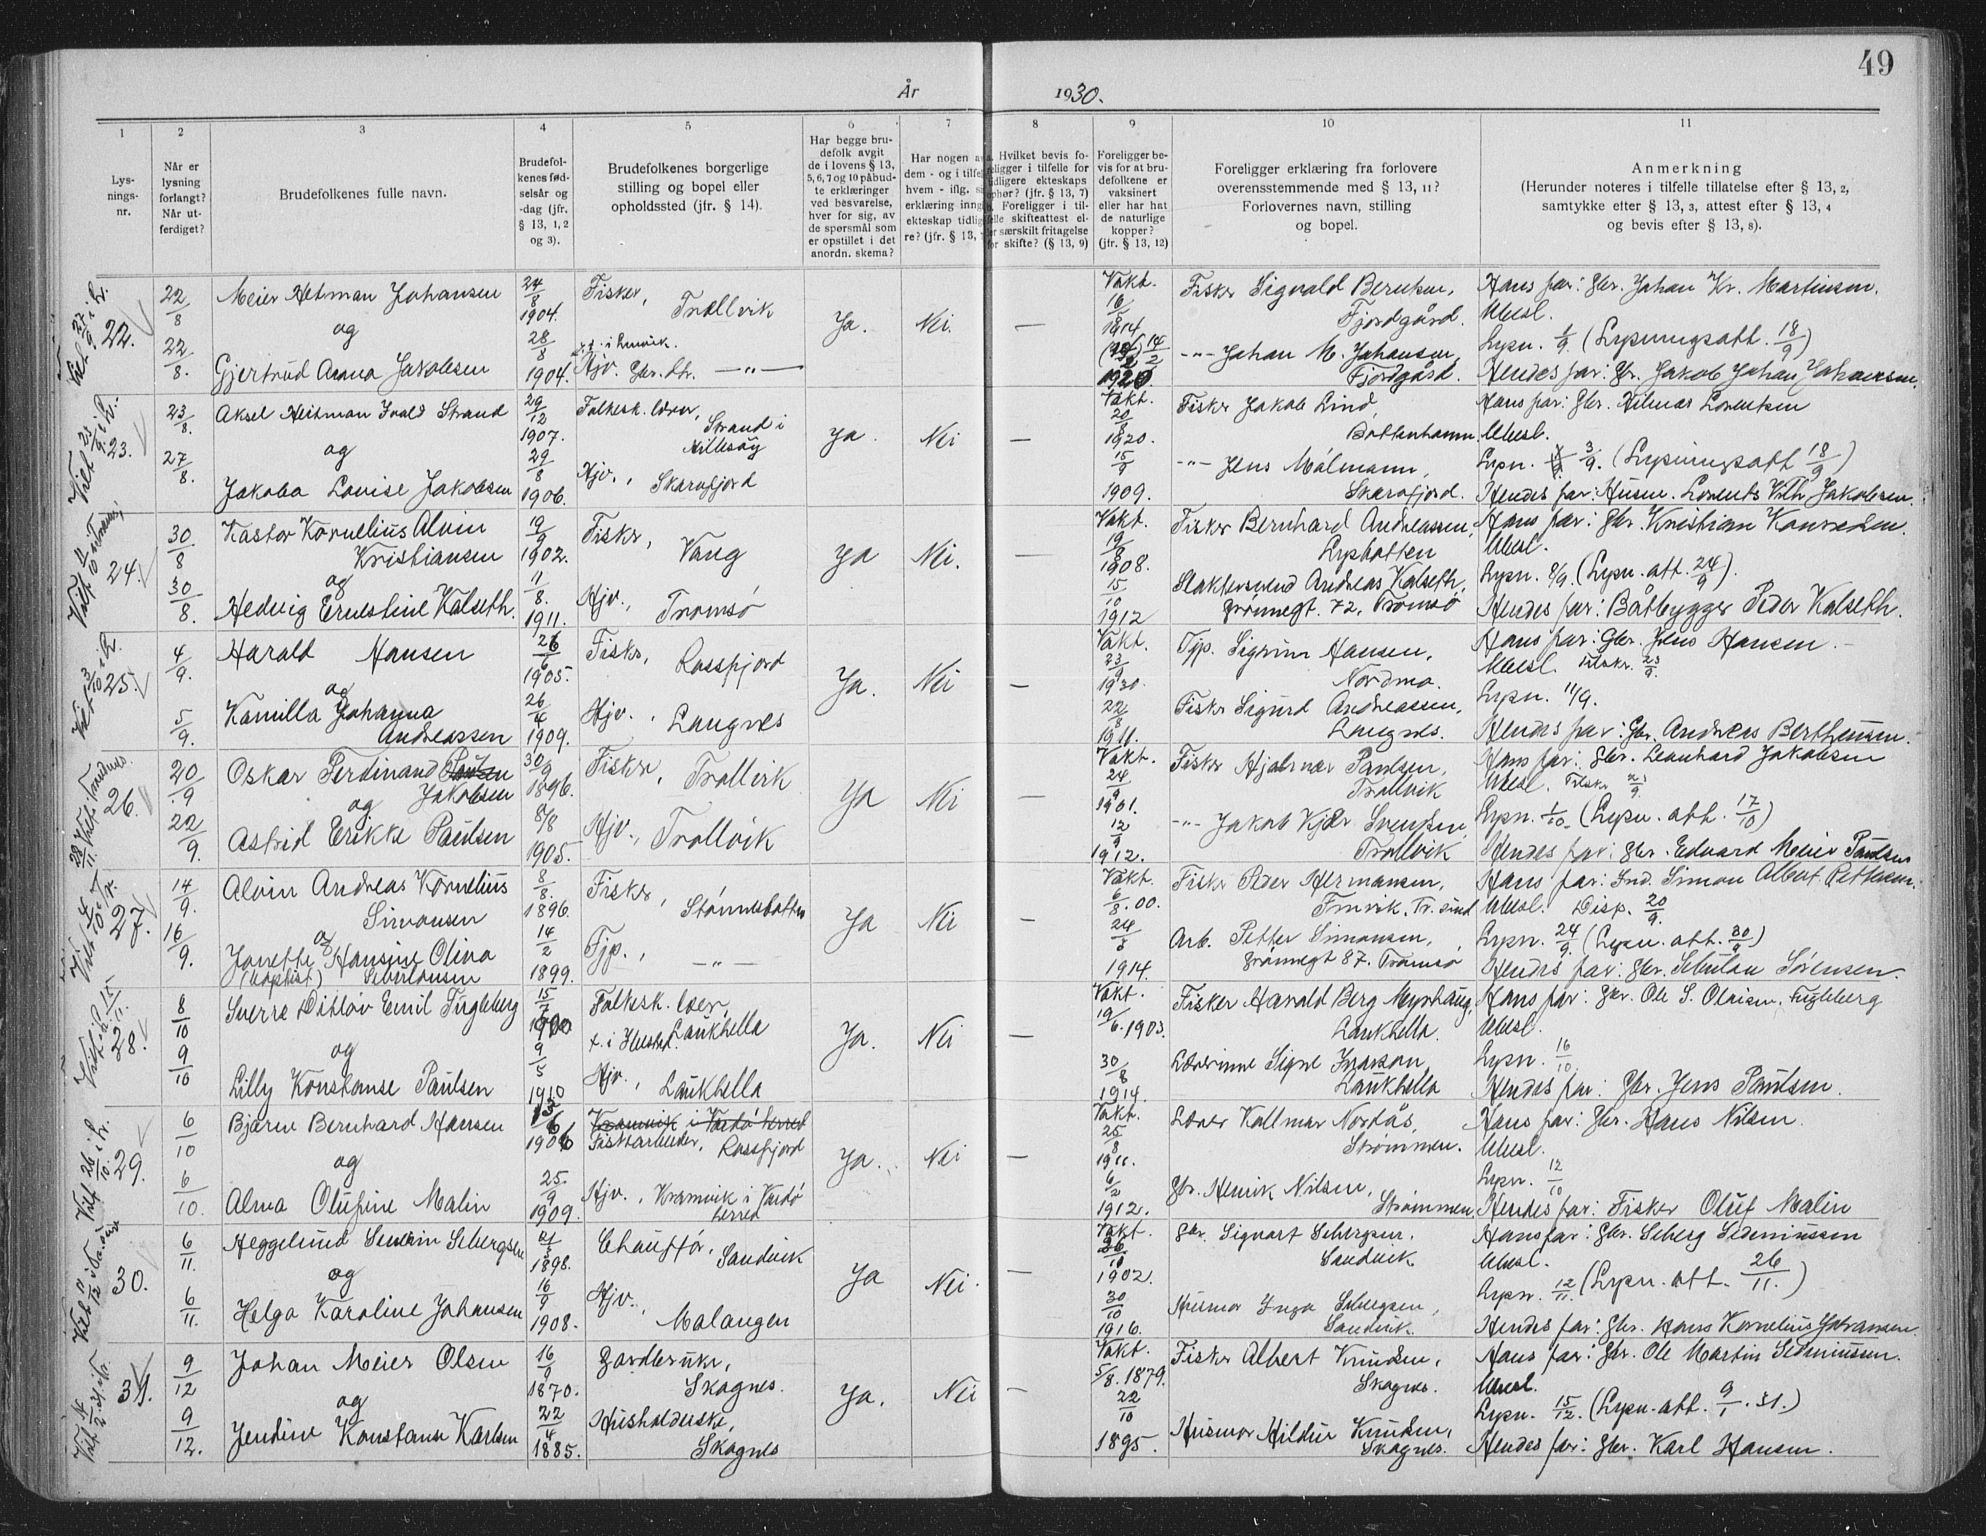 49
År 1930.
1 2 3 4 5 6 7 8 9 10 11
Lys-
nings-
nr.
Når er
lysning
forlangt?
Når ut-
ferdiget?
Brudefolkenes fulle navn.
Brudefol-
kenes fød-
selsår og
-dag (jfr.
§ 13, 1, 2
og 3).
Brudefolkenes borgerlige
stilling og bopel eller
opholdssted (jfr. § 14).
Har begge bru-
defolk avgit
de i lovens § 13,
5, 6, 7 og 10 påbud-
te erklæringer
ved besvarelse,
hver for sig, av
de spørsmål som
er opstillet i det
anordn. skema?
Har nogen av
dem - og i tilfelle
hvem - iflg. sin
erklæring inngått
ekteskap tidlige-
re? (jfr. § 13,
Hvilket bevis fo-
religger i tilfelle for
tidligere ekteskaps
ophør? (jfr. § 13, 7)
Foreligger i til-
felle skifteattest el-
ler særskilt fritagelse
for skifte? (§ 13, 9)
Foreligger be-
vis for at bru-
defolkene er
vaksinert
eller har hat
de naturlige
kopper?
(jfr. § 13, 12)
Foreligger erklæring fra forlovere
overensstemmende med § 13, 11?
Forlovernes navn, stilling
og bopel.
Anmerkning
(Herunder noteres i tilfelle tillatelse efter § 13, 2,
samtykke efter § 13, 3, attest efter § 13, 4
og bevis efter § 13, 8).
22. 22/8 Meier Hetman Johansen 24/8 1904. Fisker, Trollvik Ja. Nei. — Vakt. 16/8 1914 Fisker Sigvald Berntsen, Fjordgård. Hans far: Gbr. Johan Kr. Martinsen.
og Ubesl.
Lysn. 1/9. (Lysningsatt. 18/9)
22/8. Gjertrud Anna Jakobsen 28/8 1904. Hjv. Gbr. dtr. —"— 14/2 1920 -"- Johan M. Johansen, Fjordgård. Hendes far: Gbr. Jakob Johan Johansen.
23. 23/8. Aksel Heitman Ivald Strand 29/12 1907. Folkesk. lærer, Strand i Hillesøy Ja. Nei — Vakt. 20/8 1920. Fisker Jakob Lind, Bottenhamn Hans far: Gbr. Hilmar Lorentsen
og Ubesl.
Lysn. 3/9. (Lysningsatt 18/9)
27/8. Jakoba Lovise Jakobsen 29/8 1906. Hjv., Skarsfjord 15/9 1909. -"- Jens Målmann, Skarsfjord. Hendes far: Husm. Lorents Vilh Jakobsen.
24. 30/8 Kastor Kornelius Alvin
Kristiansen 19/9 1902. Fisker, Vang Ja Nei. — Vakt. 19/8 1908. Fisker Bernhard Andreassen, Lysbotten Hans far: Gbr. Kristian Konradsen.
og Ubesl.
Lysn. 8/9. (Lysn. att. 24/9).
30/8. Hedvig Ernestine Kalseth. 11/8. 1911. Hjv., Tromsø 15/10 1912 Slaktersvend Andreas Kalseth, Grønnegt. 72, Tromsø Hendes far: Båtbygger Peder Kalseth.
25. 4/9. Harald Hansen 26/6 1905. Fisker, Rossfjord Ja. Nei — Vakt. 23/9 1930. Tjp. Sigrun Hansen, Nordmo. Hans far: Gbr. Jens Hansen.
og Ubesl. Tilskr. 23/9.
Lysn. 11/9.
5/9. Kamilla Johanna
Andreassen 26/4 1909. Hjv., Langnes 22/8 1911. Fisker Sigurd Andreassen, Langnes. Hendes far: Gbr. Andreas Bertheussen.
26. 20/9 Oskar Ferdinand Paulsen
Jakobsen 30/9 1896. Fisker, Trollvik Ja Nei — Vakt. 24/9 1901. Fisker Hjalmar Paulsen, Trollvik Hans far: Gbr. Leonhard Jakobsen
og Ubesl.
Lysn. 1/10. (Lysn. att. 17/10)
22/9. Astrid Erikke Paulsen 8/8 1905. Hjv., Trollvik 12/9 1912. -"- Jakob Kjær Svendsen, Trollvik Hendes far: Gbr. Edvard Meier Paulsen
27. 14/9. Alvin Andreas Kornelius
Simonsen 8/8. 1896. Fisker, Stønnesbotten Ja Nei — Vakt. 6/8.00. Fisker Peder Hermansen, Finvik, Tr. sund Hans far: Ind. Simon Albert Pettersen.
og Ubesl. Disp. 20/9.
Lysn. 24/9 (Lysn. att. 30/9)
16/9. Janette Hansine Olina
(baptist) Sebulonsen 14/2 1899. Tjp., —"— 24/8 1914. Arb. Petter Simonsen, Grønnegt 87. Tromsø Hendes far: Gbr. Sebulon Sørensen.
28. 8/10 Sverre Ditlov Emil Fugleberg 15/7 1900 Folkesk. lærer, Laukhella Ja. Nei — Vakt. 19/6.1903. Fisker Harald Berg Myrhaug, Laukhella. Hans far: Gbr. Ole S. Olaisen, Fugleberg
og Ubesl.
Lysn. 16/10
9/10 Lilly Konstanse Paulsen 9/5 1910 Hjv., Laukhella 30/8 1914. Lærerinne Signe Ivarson, Laukhella Hendes far: Gbr. Jens Paulsen.
29. 6/10 Bjarne Bernhard Hansen 1906 Kramvik i Vardø herred
Fiskarbeider, Rossfjord Ja. Nei — Vakt. 25/8 1911. Lærer Kallmar Nordås, Strømmen. Hans far: Gbr. Hans Nilsen.
og Ubesl.
Lysn. 12/10
6/10. Alma Olufine Malin 25/9 1909. Hjv., Kramvik i Vardø herred 6/2 1912. Gbr. Henrik Nilsen, Strømmen, Hendes far: Fisker Oluf Malin
30. 6/11. Heggelund Severin Sebergsen 1898. Chauffør, Sandvik Ja Nei. — Vakt. 26/10 1902. Gbr. Sigvart Sebergsen, Sandvik Hans far: Gbr. Seberg Sedeniussen
og Ubesl.
Lysn. 12/11 (Lysn. att. 26/11.)
6/11. Helga Karoline Johansen 16/9 1908. Hjv., Malangen 30/10 1916. Husmor Inga Sebergsen, Sandvik. Hendes far: Gbr. Hans Kornelius Johansen.
31. 9/12 Johan Meier Olsen 16/9 1870. Gardbruker, Skognes. Ja. Nei — Vakt. 5/8.1879. Fisker Albert Knudsen, Skognes. Hans far: Gbr. Ole Martin Sedeniussen.
og Ubesl.
Lysn. 15/12. (Lysn. att. 9/1.31.)
9/12. Jendine Konstanse Karlsen 22/4 1885. Husholderske, Skognes 22/10 1895. Husmor Hildur Knudsen, Skognes. Hendes far: Gbr. Karl Hansen.